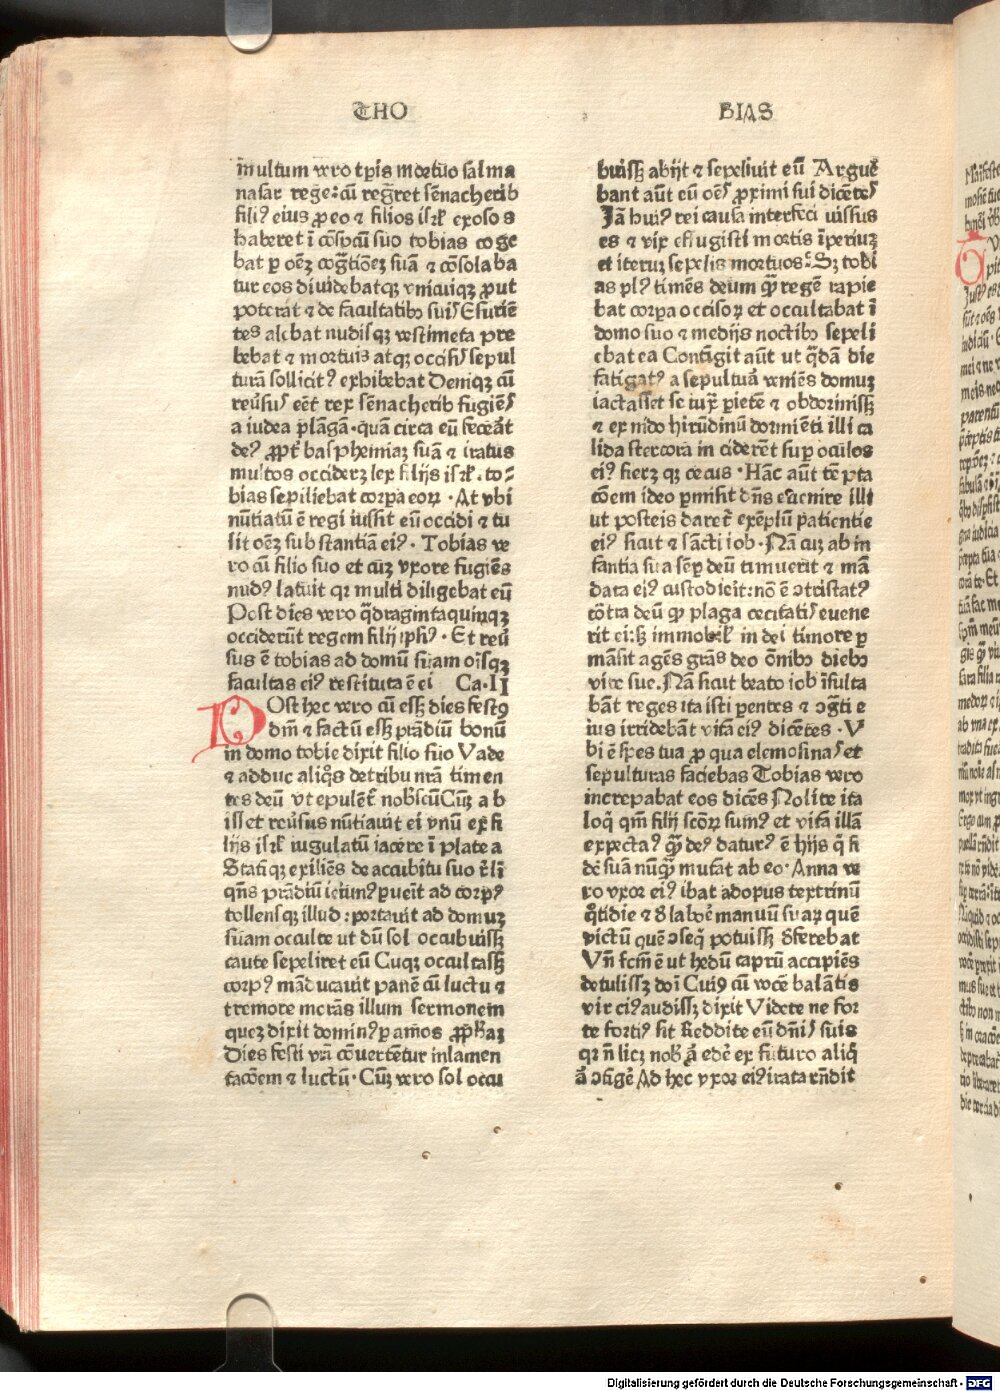 THO
BIAS
multum vero tp̄is mortuo salma
nasar rege: cū reg̃ret sēnacherib
filiꝰ eius ꝓ eo ⁊ filios isrl̃ exosos
haberet ī cōspc̄u suo tobias coge
bat ꝑ oēꝫ cog̃tiōeꝫ suā ⁊ cōsolaba
tur eos diuidebatqꝫ vnicuiqꝫ ꝓut
poterāt ⁊ de facultatibꝰ suis Esuriē
tes alebat nudisqꝫ vestimeta pre
bebat ⁊ mortuis atqꝫ occisis sepul
turā sollicitꝰ exhibebat Deniqꝫ cū
reũsus eēt rex sēnacherib fugiēs
a iudea plāgā· quā circa eū fecerat
deꝰ ꝓpt̃ basphemiaꝫ suā ⁊ iratus
multos occidereꝫ ex filijs isrl̃. to⸗
bias sepiliebat corꝑa eoꝝ · At vbi
nūtiatū ē regi iussit eū occidi ⁊ tu
lit oēꝫ substantiā eiꝰ · Tobias ve
ro cū filio suo et cuꝫ vxore fugiēs
nudꝰ latuit qꝛ multi diligebat eū
Post dies vero q̄dragintaquinqꝫ
occiderūt regem filij ipsiꝰ · Et reũ
sus ē tobias ad domū suam oīsqꝫ
facultas eiꝰ restituta ē ei Ca·II
POst hec vero cū essꝫ dies festꝰ
dm̄ ⁊ factū essꝫ prādiū bonū
in domo tobie dixit filio suo Vade
⁊ adduc aliq̄s de tribu nr̄a timen
tes deū vt epulēt̃ nob̃scū Cūꝫ ab
isset reũsus nūtiauit ei vnū ex fi
lijs isrl̃ iugulatū iacere ī platea
Statiqꝫ exiliēs de accubitu suo r̃li
qn̄s prādiū ieiunꝰ ꝑueīt ad corpꝰ
tollensqꝫ illud : portauit ad domuꝫ
suam occulte ut dū sol occubuissꝫ
caute sepeliret eū Cuqꝫ occultassꝫ
corpꝰ māducauit panē cū luctu ⁊
tremore merās illum sermonem
queꝫ dixit dominꝰ ꝑ amos ꝓphaꝫ
Dies festi vr̄a cōuertētur in lamen
tacōem ⁊ luctū · Cūꝫ vero sol occu
buissꝫ abijt ⁊ sepeliuit eū Argue
bant aūt eū oēs ꝓximi sui dicētes
Jā huiꝰ rei causa interfeci uissus
es ⁊ vix effugisti mortis īperiuꝫ
et iteruꝫ sepelis mortuos: Sꝫ tobi
as plꝰ timēs deum q̃ꝫ regē rapie
bat corꝑa occisoꝝ et occultabat ī
domo suo ⁊ medijs noctibꝰ sepeli
ebat ea Contigit aūt ut q̄dā die
fatigatꝰ a sepultua veniēs domuꝫ
iactasset se iux̄ ꝑietē ⁊ obdormissꝫ
⁊ ex nido hirūdinū dormiēti illi ca
lida stercora inciderēt suꝑ oculos
eiꝰ fierꝫqꝫ cecus · Hāc aūt tēpta
cōem ideo ꝑmisit dn̄s euenire illi
ut posteis daret̃ exēplū patientie
eiꝰ sicut ⁊ sācti iob· Nā cuꝫ ab in
fantia sua sēꝑ deū timuerit ⁊ mā
data eiꝰ custodieit: nō ē ↄtristatꝰ
cōtra deū qꝙ plaga cecitatis euene
rit ei: sꝫ immobil̃ in dei timore ꝑ
māsit agēs gr̄as deo ōnibꝰ diebꝰ
vite sue. Nā sicut beato iob īsulta
bāt reges ita isti ꝑentes ⁊ ↄg̃ti e
ius irridebāt vitā eiꝰ dicētes · V
bi ē spes tua ꝓ qua elemosinas et
sepulturas faciebas Tobias vero
increpabat eos dicēs Nolite ita
loq̄ qm̄ filij scōꝝ sumꝰ et vitā illā
expectaꝰ q̃ꝫ deꝰ daturꝰ ē hijs q̄ fi
dē suā nūq̃ꝫ mutāt ab eo · Anna ve
ro vxor eiꝰ ibat ad opus textrinū
q̄tidie ⁊ d̄ labōe manuū suaꝝ quē
victū quē ↄseq̄ potuissꝫ d̄ferebat
Vn̄ fc̄m ē ut hedū caprū accipiēs
detulissꝫ doī Cuiꝰ cū vocē balātis
vir eiꝰ audissꝫ dixit Videte ne for
te fortiꝰ sit Reddite eū dn̄is suis
qꝛ n̄ licꝫ nob̃ ā edē ex futuro aliq̄
ā ↄtigē Ad hec vxor eiꝰ irata rn̄dit
Digitalisierung gefördert durch die Deutsche Forschungsgemeinschaft - DFG